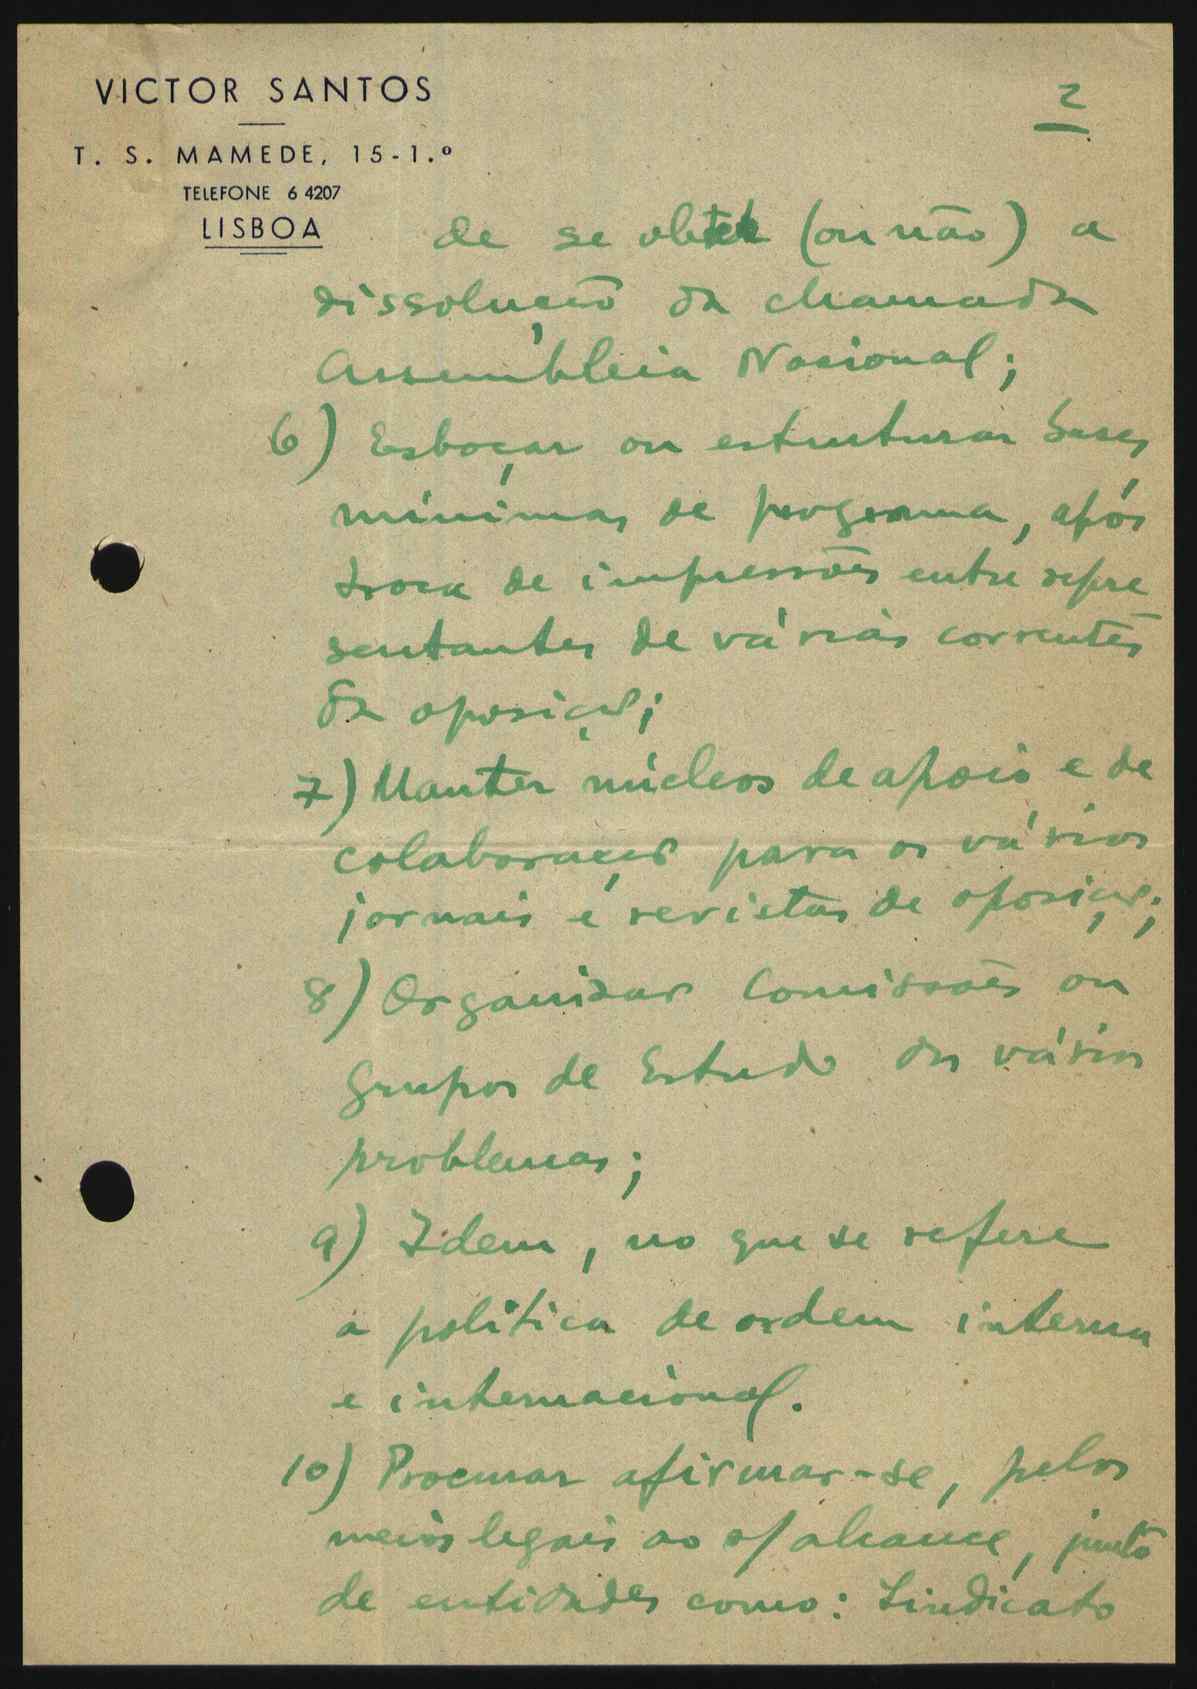 VICTOR SANTOS
T. S. MAMEDE, 15-1.º
TELEFONE 6 4207
LISBOA
2
de se obter (ou não) a
dissolução da chamada
Assembleia Nacional;
6) Esboçar ou estruturar bases
mínimas de programa, após
troca de impressões entre repre
sentantes de várias correntes
da oposição;
7) Manter núcleos de apoio e de
colaboração para os vários
jornais e revistas de oposição;
8) Organizar Comissões ou
Grupos de Estudo dos vários
problemas;
9) Idem, no que se refere
a política de ordem interna
e internacional.
10) Procurar afirmar-se, pelos
meios legais ao s/ alcance, junto
de entidades como: Sindicato